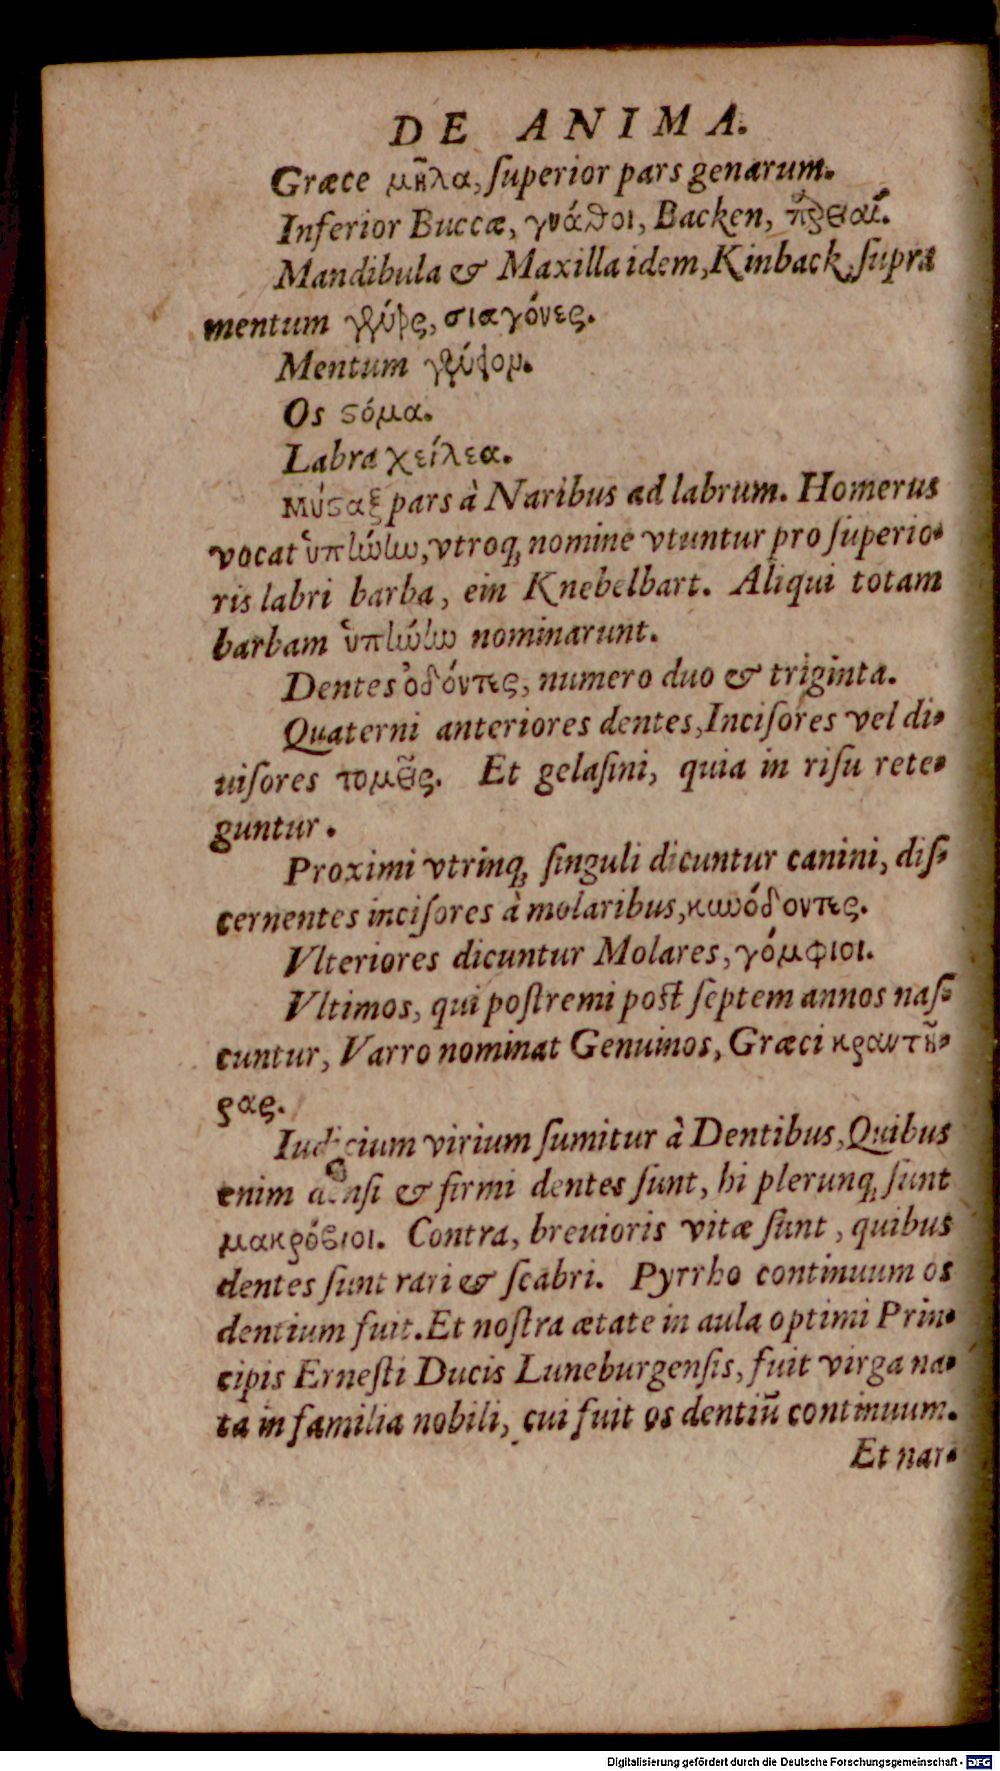 DE ANIMA.
Græce μῆλα, ſuperior pars genarum.
Inferior Buccæ, γνάθοι, Backen,
Mandibula & Maxilla idem, Kinback, ſupra
mentum σιαγόνες.
Mentum
Os ϛόμα.
Labra χείλεα.
μύϛαξ pars à Naribus ad labrum. Homerus
vocat ὑπήνην, vtroq; nomine vtuntur pro ſuperio-
ris labri barba, ein Knebelbart. Aliqui totam
barbam ὑπήνην nominarunt.
Dentes ὀδόντες, numero duo & triginta.
Quaterni anteriores dentes, Inciſores vel di-
uiſores τομεῖς. Et gelaſini, quia in riſu rete-
guntur.
Proximi vtrinq; ſinguli dicuntur canini, diſ-
cernentes inciſores à molaribus, κυνόδοντες.
Vlteriores dicuntur Molares, γόμφιοι.
Vltimos, qui poſtremi poſt ſeptem annos naſ-
cuntur, Varro nominat Genuinos, Græci κραντῆ-
ρας.
Iudicium virium ſumitur à Dentibus, Quibus
enim denſi & firmi dentes ſunt, hi plerunq; ſunt
μακρόβιοι. Contra, breuioris vitæ ſunt, quibus
dentes ſunt rari & ſcabri. Pyrrho continuum os
dentium fuit. Et noſtra ætate in aula optimi Prin-
cipis Erneſti Ducis Luneburgenſis, fuit virgo na-
ta in familia nobili, cui fuit os dentiū continuum.
Et nar-
Digitalisierung gefördert durch die Deutsche Forschungsgemeinschaft - DFG